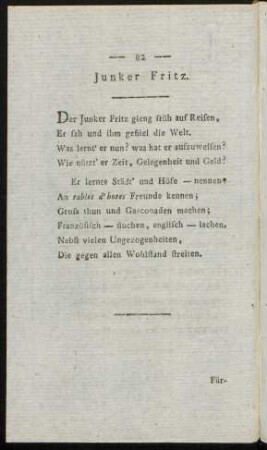 — 82 —
Junker Fritz.
Der Junker Fritz gieng früh auf Reisen,
Er sah und ihm gefiel die Welt.
Was lernt' er nun? was hat er aufzuweisen?
Wie nützt' er Zeit, Gelegenheit und Geld?
Er lernte Städt' und Höfe — nennen,
An tables d'hotes Freunde kennen;
Gross thun und Gasconaden machen;
Französisch — fluchen, englisch — lachen,
Nebst vielen Ungezogenheiten,
Die gegen allen Wohlstand streiten.
Für-